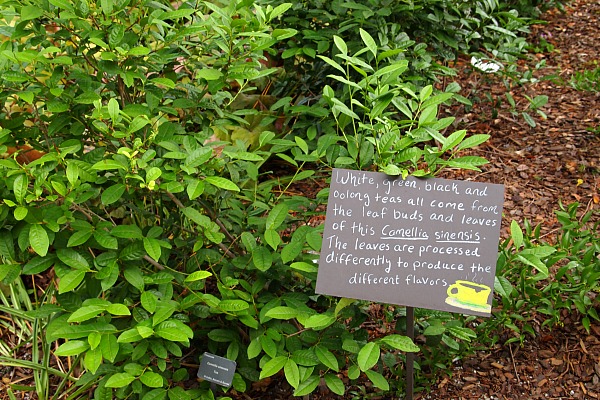 White, green, black and
oolong teas all come from
the leaf buds and leaves
of this Camellia sinensis.
The leaves are processed
differently to produce the
different flavors.